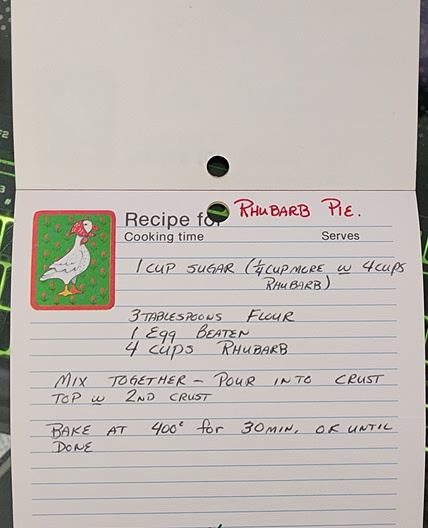 Recipe for RHUBARB PIE.
Cooking time Serves
1 CUP SUGAR (1/4 CUP MORE W 4 CUPS
RHUBARB)
3 TABLESPOONS FLOUR
1 EGG BEATEN
4 CUPS RHUBARB
MIX TOGETHER - POUR INTO CRUST
TOP W 2ND CRUST
BAKE AT 400° for 30 MIN. OR UNTIL
DONE
F2
3
#